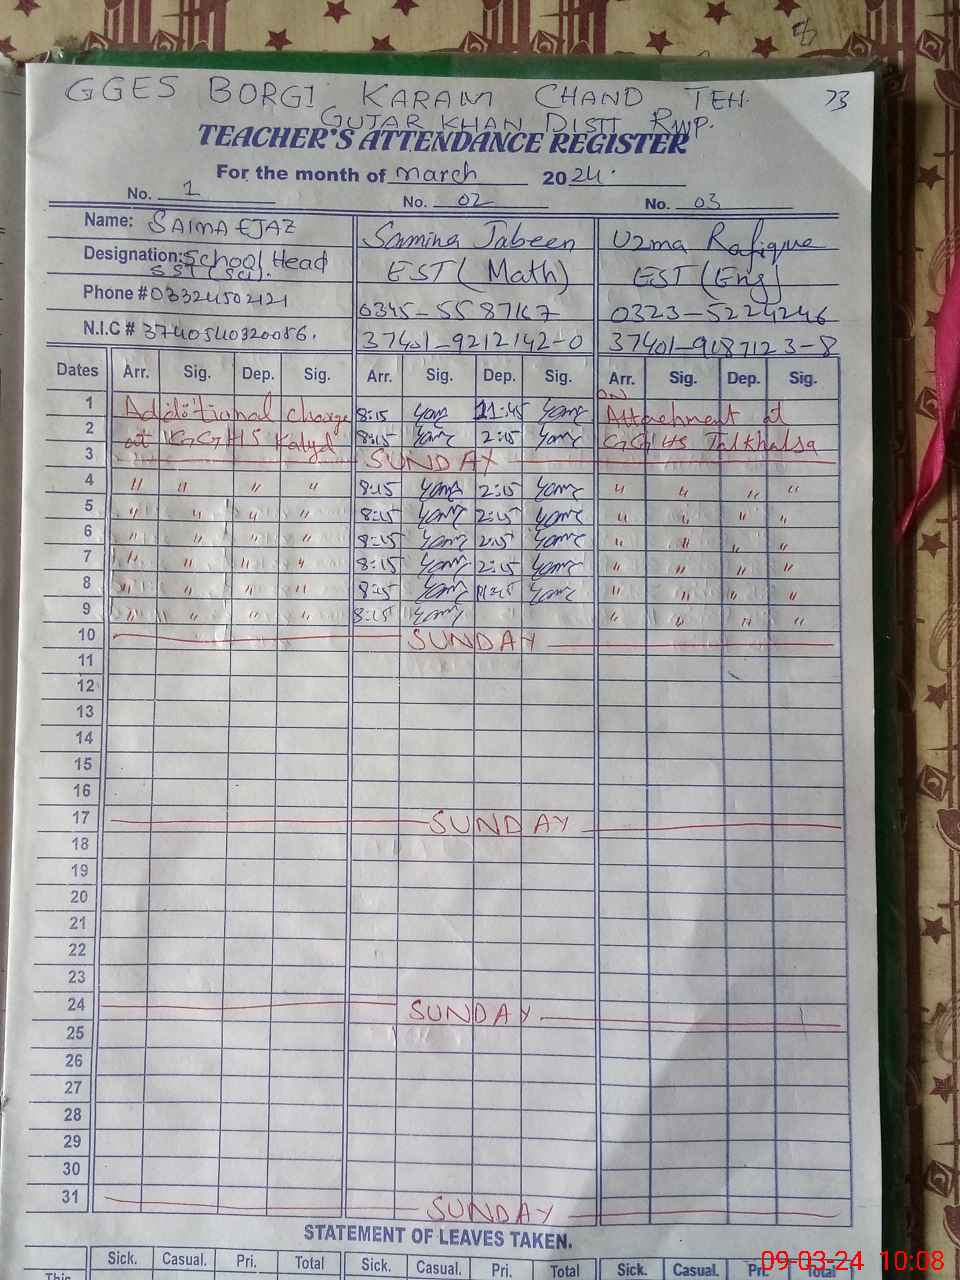 GGES BORGI KARAM CHAND TEH. 73
GUJAR KHAN DISTT RWP.
TEACHER'S ATTENDANCE REGISTER
For the month of march 2024.
No. 1 No. 02 No. 03
Name: SAIMA EJAZ Samina Jabeen Uzma Rafique
Designation: School Head
SST (Sci). EST (Math) EST (Eng)
Phone # 03324502121 0345-5587167 0323-5224246
N.I.C # 3740540320056. 37401-9212142-0 37401-9187123-8
Dates Arr. Sig. Dep. Sig. Arr. Sig. Dep. Sig. Arr. Sig. Dep. Sig.
ON
1 Additional charge 8:15 11:45 Attachment at
2 at GGHS 8:15 2:15 GGHS Talkhalsa
3 SUNDAY
4 " " " " 8:15 2:15 " " " "
5 " " " " 8:15 2:15 " " " "
6 " " " " 8:15 2:15 " " " "
7 " " " " 8:15 2:15 " " " "
8 " " " " 8:15 " " " "
9 " " " " 8:15 " " " "
10 SUNDAY
11
12
13
14
15
16
17 SUNDAY
18
19
20
21
22
23
24 SUNDAY
25
26
27
28
29
30
31 SUNDAY
STATEMENT OF LEAVES TAKEN.
Sick. Casual. Pri. Total Sick. Casual. Pri. Total Sick. Casual. Pri. Total
This
09-03-24 10:08